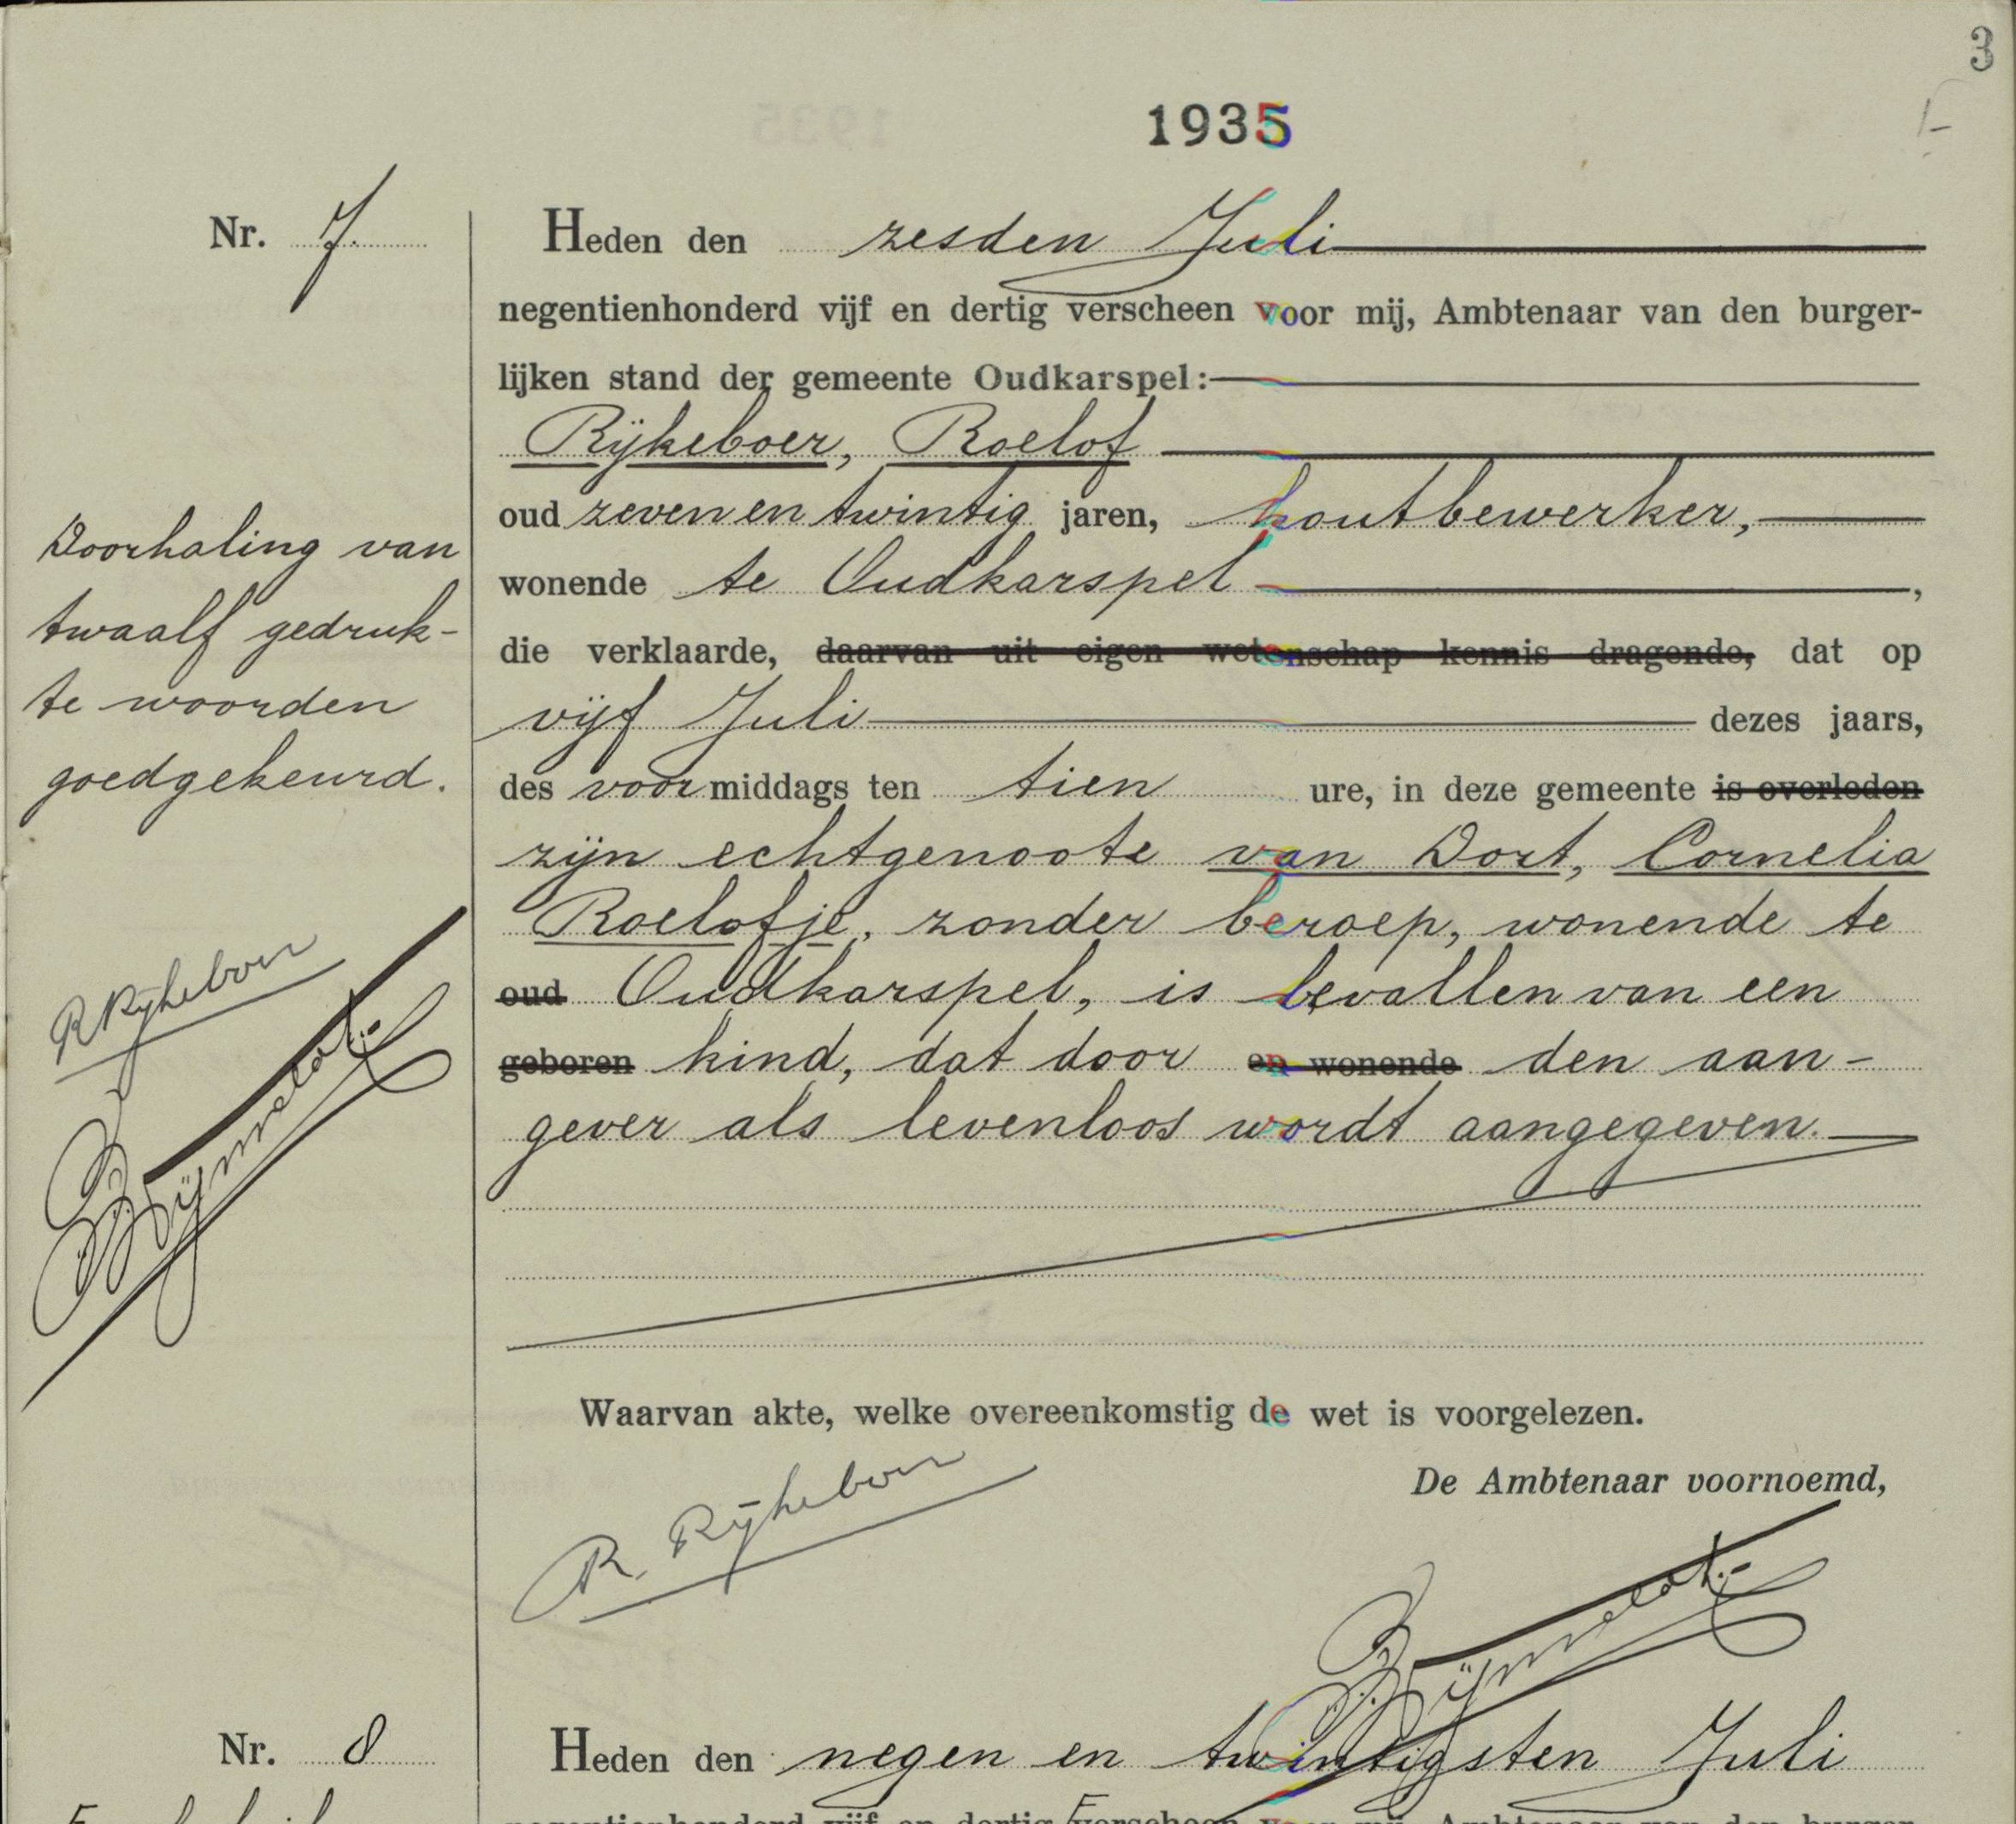 3
1935
Nr. 7.
Heden den zesden Juli
negentienhonderd vijf en dertig verscheen voor mij, Ambtenaar van den burger-
lijken stand der gemeente Oudkarspel:
Rijkeboer, Roelof
oud zeven en twintig jaren, houtbewerker,
wonende te Oudkarspel,
die verklaarde, daarvan uit eigen wetenschap kennis dragende, dat op
vijf Juli dezes jaars,
des voormiddags ten tien ure, in deze gemeente is overleden
zijn echtgenoote van Dort, Cornelia
Roelofje, zonder beroep, wonende te
oud Oudkarspel, is bevallen van een
geboren kind, dat door en wonende den aan-
gever als levenloos wordt aangegeven.
Doorhaling van
twaalf gedruk-
te woorden
goedgekeurd.
R Rijkeboer
Waarvan akte, welke overeenkomstig de wet is voorgelezen.
De Ambtenaar voornoemd,
R. Rijkeboer
Nr. 8
Heden den negen en twintigsten Juli